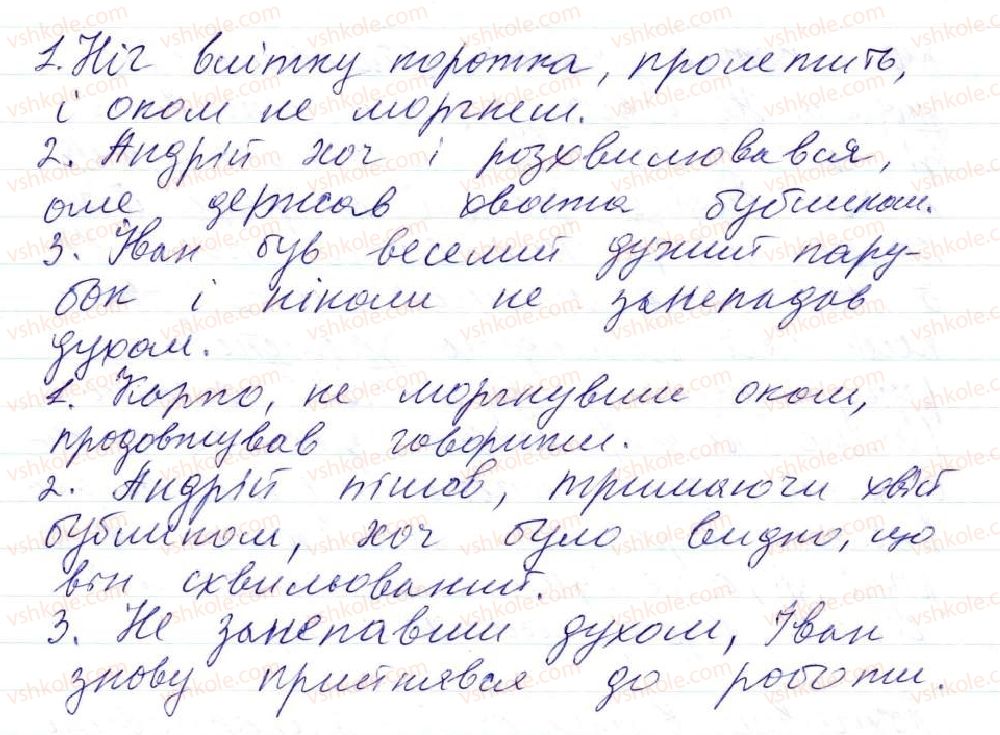 1. Ніч влітку коротка, пролетить,
і оком не моргнеш.
2. Андрій хоч і розхвилювався,
але держав хвоста бубликом.
3. Іван був веселий дужий пару-
бок і ніколи не занепадав
духом.
1. Карпо, не моргнувши оком,
продовжував говорити.
2. Андрій пішов, тримаючи хвіст
бубликом, хоч було видно, що
він схвильований.
3. Не занепавши духом, Іван
знову прийнявся до роботи.